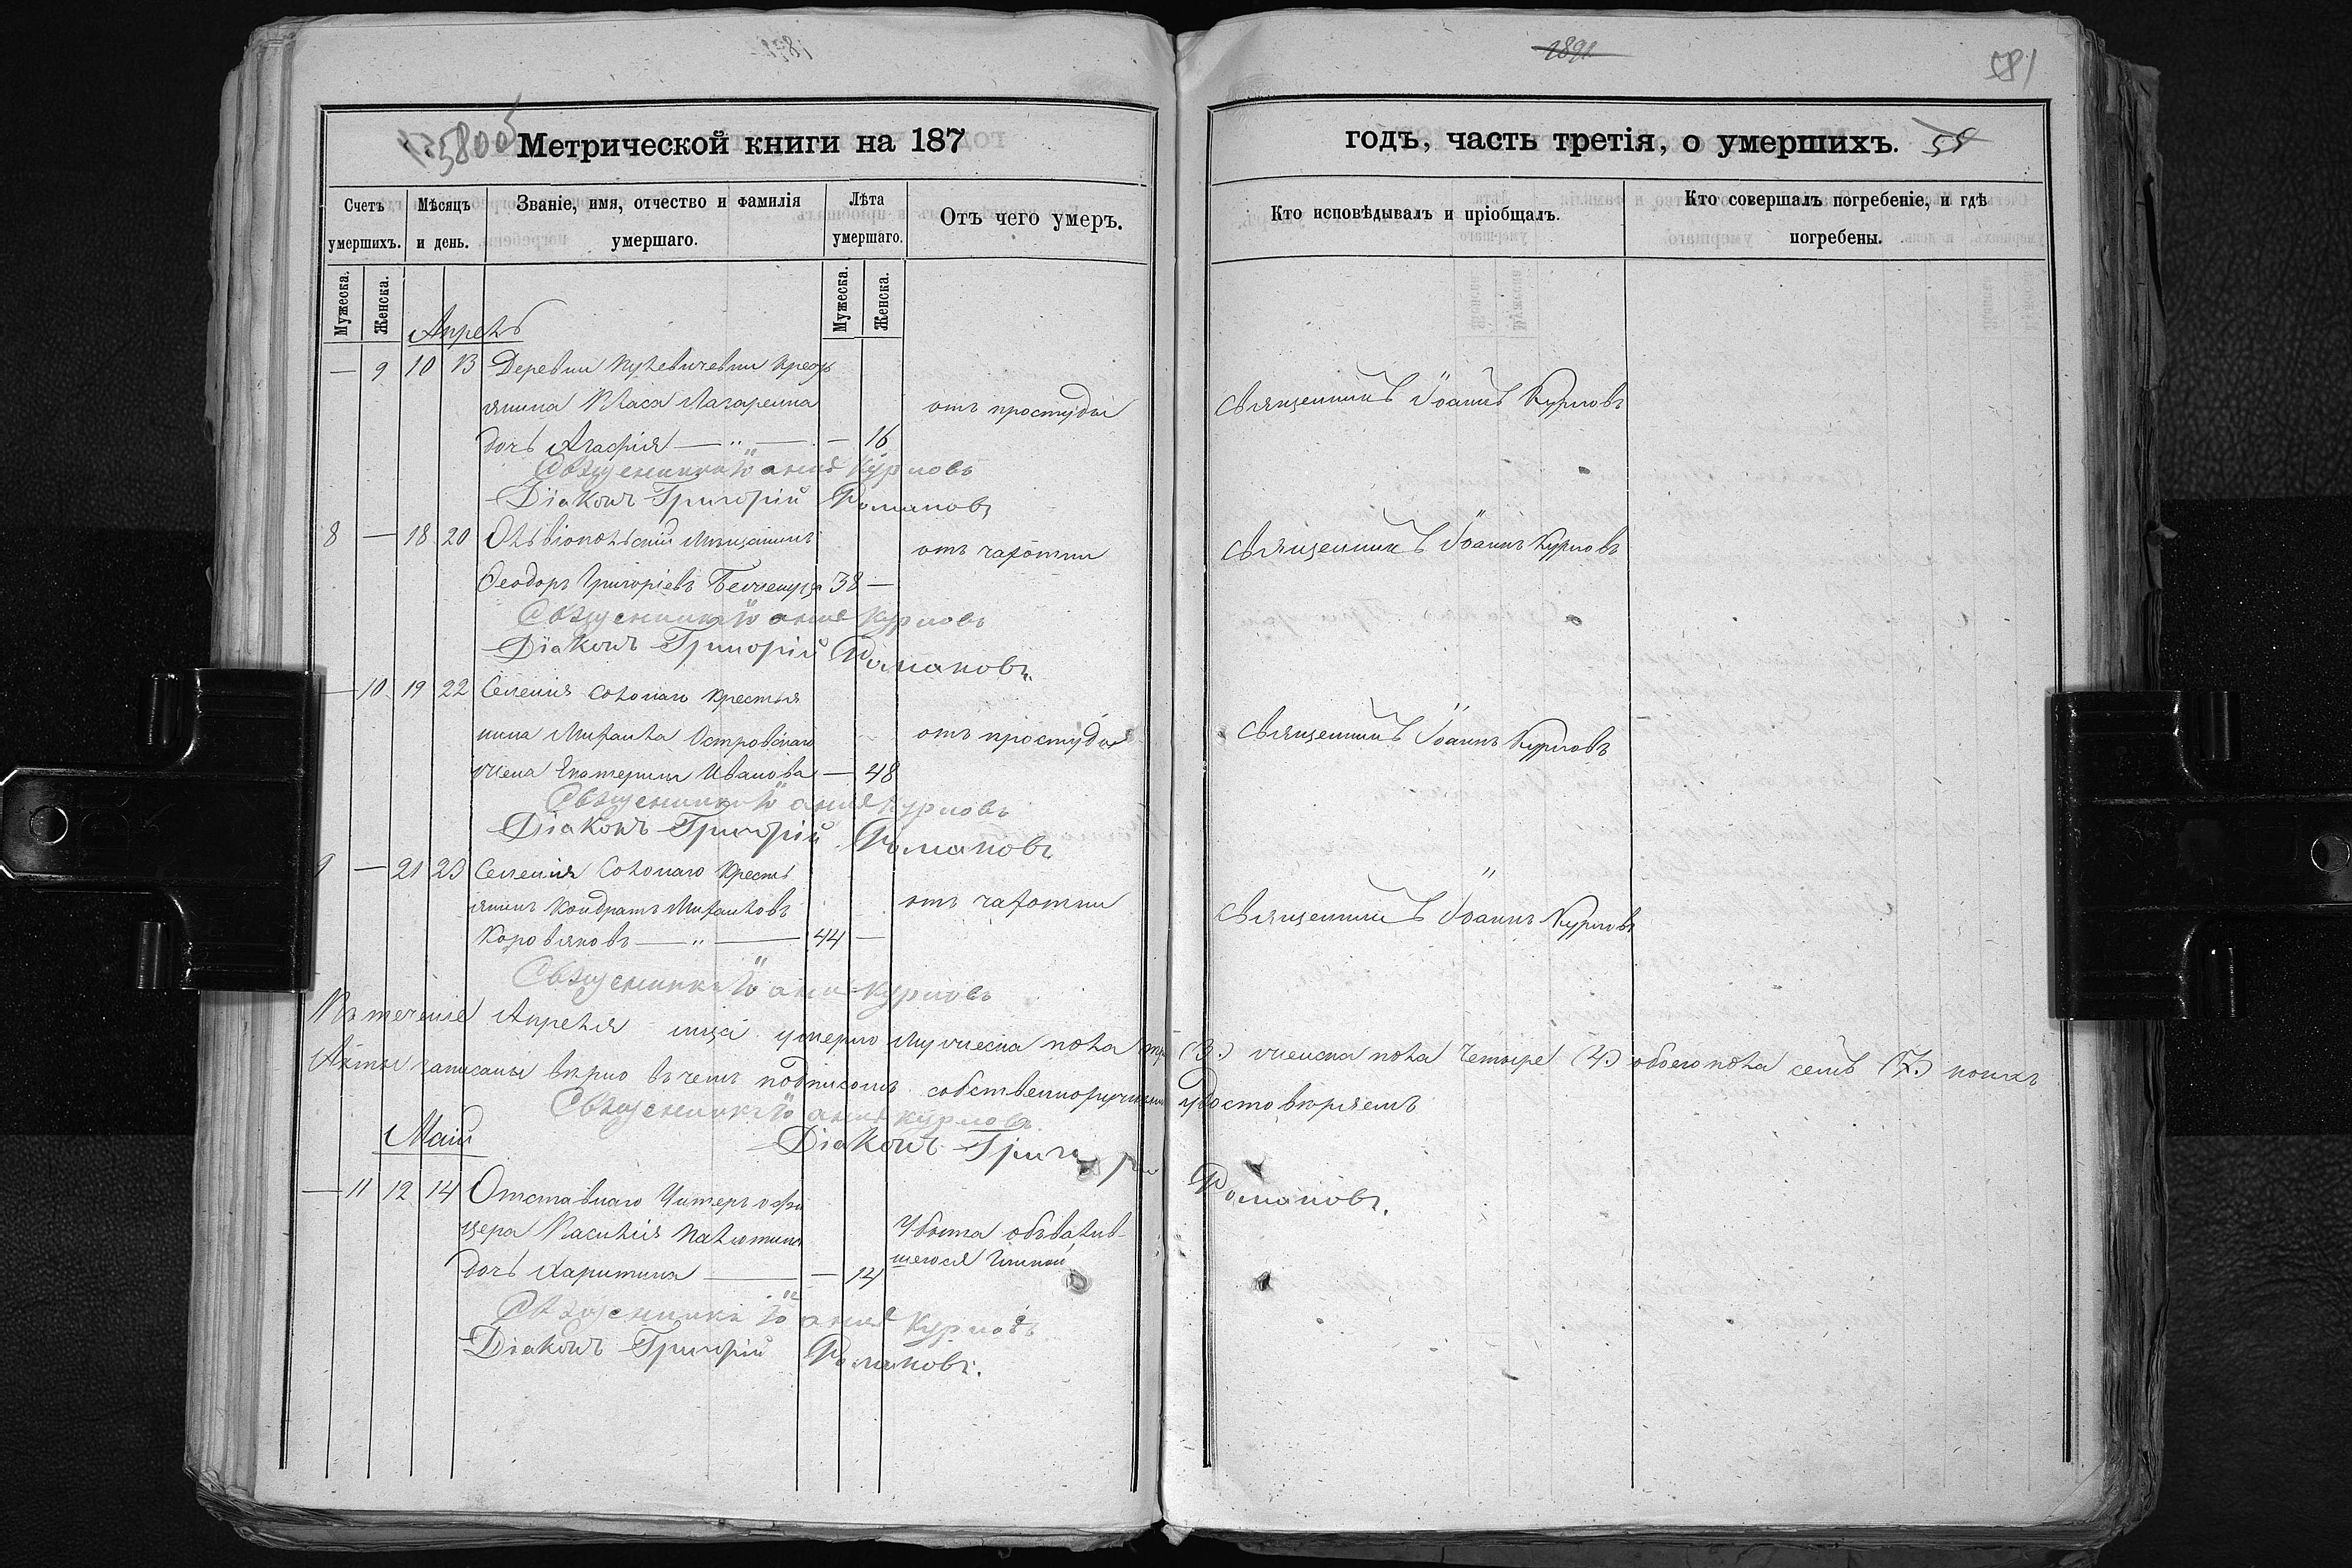 1891
181
Метрической книги на 187
годъ, часть третія, о умершихъ.
Счетъ умершихъ.
Мѣсяцъ и день.
Званіе, имя, отчество и фамилія умершаго.
Лѣта умершаго.
Отъ чего умеръ.
Кто исповѣдывалъ и пріобщалъ.
Кто совершалъ погребеніе, и гдѣ погребены.
Мужеска.
Женска.
Мужеска.
Женска.
Апрель
— 9 10 13 Деревни
янина Власа Назаренка
отъ простуды
Священникъ Іоаннъ Курловъ
дочь Агафія — „ — — 16
Священникъ Іоаннъ Курловъ
Діаконъ Григорій Романовъ
8 — 18 20 Ольвіопольскій Мѣщанинъ
отъ чахотки
Священникъ Іоаннъ Курловъ
Феодоръ Григоріевъ 38 —
Священникъ Іоаннъ Курловъ
Діаконъ Григорій Романовъ.
— 10 19 22 Селенія Солонаго Крестья
нина Михаила Островскаго
отъ простуды
Священникъ Іоаннъ Курловъ
жена Екатерина Иванова — 48
Священникъ Іоаннъ Курловъ
Діаконъ Григорій Романовъ
9 — 21 23 Селенія Солонаго Кресть
янинъ Кондратъ Михаиловъ
отъ чахотки
Священникъ Іоаннъ Курловъ
Коровяковъ — „ — 44 —
Священникъ Іоаннъ Курловъ
Въ теченіе Апреля мца умерло мужеска пола три (3.) женска пола Четыре (4.) обоего пола семь (7.) коихъ
Акты записаны вѣрно въ чемъ подписомъ собственноручнымъ удостовѣряемъ
Священникъ Іоаннъ Курловъ.
Май
Діаконъ Григорій Романовъ.
— 11 12 14 Отставнаго Унтеръ офи
цера Василія
Убита обвалив-
шеюся глиной
дочь Харитина — — 14
Священникъ Іоаннъ Курловъ
Діаконъ Григорій Романовъ.